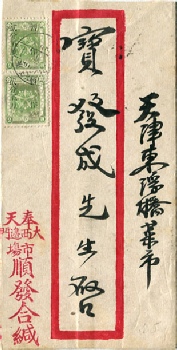 天津東浮橋菜市
寶發成先生啓
奉天
大西邊門
市場
順發合緘